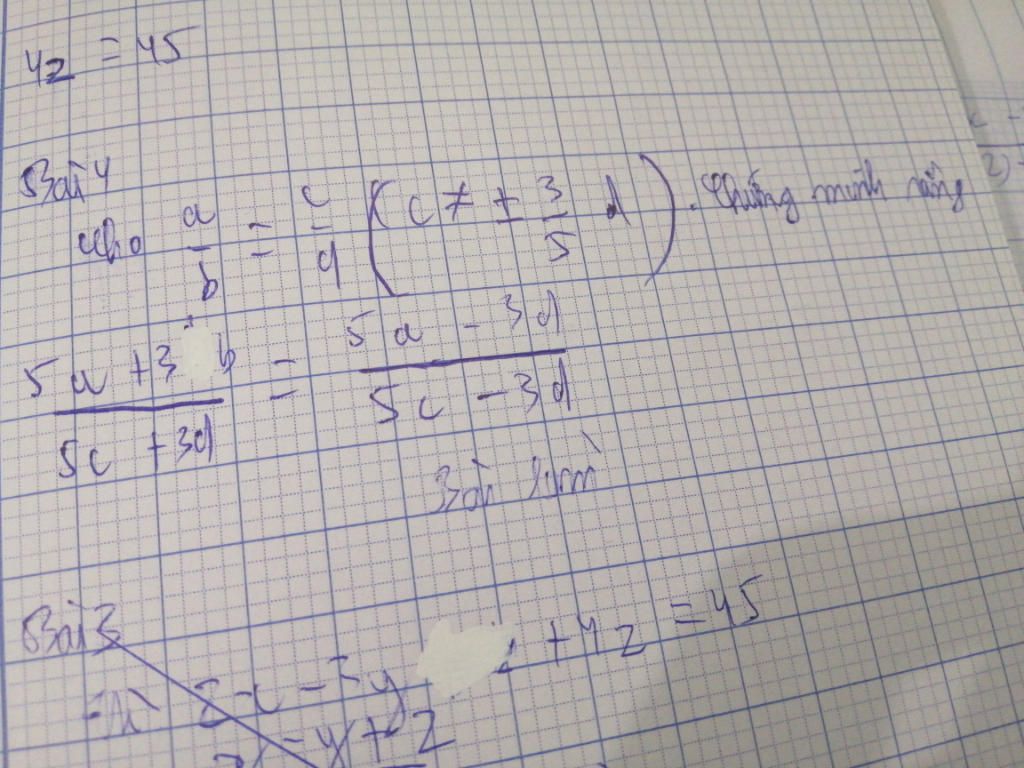 4z = 45
Bài 4
Cho a/b = c/d (c ≠ ± 3/5 d). Chứng minh rằng 2)
5a + 3b / 5c + 3d = 5a - 3d / 5c - 3d
Bài làm
Bài 3
2x - 3y + 4z = 45
- y + z